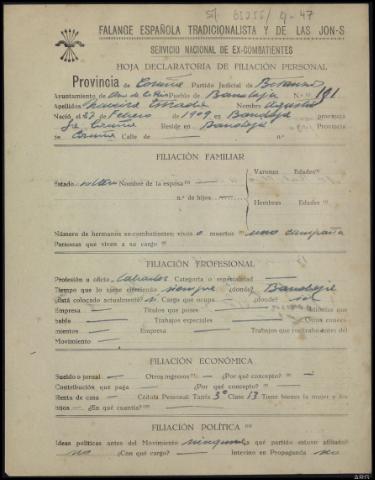 FALANGE ESPAÑOLA TRADICIONALISTA Y DE LAS JON-S
SERVICIO NACIONAL DE EX-COMBATIENTES
HOJA DECLARATORIA DE FILIACIÓN PERSONAL
Provincia de Coruña Partido Judicial de Betanzos
Ayuntamiento de Pueblo de Bandoja N.º 191
Apellidos Nombre Agustín
Nació, el 27 de Febrero de 1909 en Bandoja
de Coruña Reside en Bandoja Provincia
de Coruña Calle de — n.º
FILIACIÓN FAMILIAR
Estado soltero Nombre de la esposa — Varones Edades
n.º de hijos
Hembras Edades
Número de hermanos ex-combatientes vivos o muertos uno campaña
Personas que viven a su cargo
FILIACIÓN PROFESIONAL
Profesión u oficio Labrador Categoría o especialidad —
Tiempo que lo viene ejerciendo siempre ¿dónde? Bandoja
¿Está colocado actualmente? Cargo que ocupa ¿dónde?
Empresa — Títulos que posee — Idiomas que
habla — Trabajos especiales — Otros conoci-
mientos — Empresa — Trabajos que realizaba antes del
Movimiento —
FILIACIÓN ECONÓMICA
Sueldo o jornal — Otros ingresos — ¿Por qué concepto? —
Contribución que paga — ¿Por qué concepto? —
Renta de casa — Cédula Personal Tarifa 3ª Clase 13 Tiene bienes la mujer y los
hijos — ¿En qué cuantía? —
FILIACIÓN POLÍTICA
Ideas políticas antes del Movimiento ninguna qué partido estuvo afiliado
no ¿Con qué cargo? — Intervino en Propaganda no